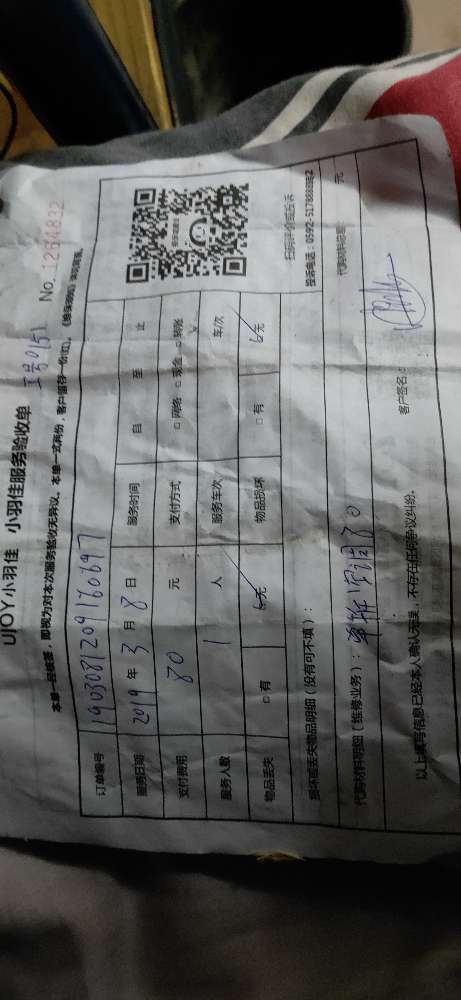 UJOY小羽佳 小羽佳服务验收单 工号0151 No. 1264832
本单一经签署，即视为对本次服务验收无异议。本单一式两份，客户留存一份(红)。
订单编号 190308120916069
服务日期 2019 年 3 月 8 日 服务时间 自 至 止
支付费用 80 元 支付方式 □网络 □现金 □转账
服务人数 1 人 服务车次 车/次
物品丢失 □有 □无 物品损坏 □有 □无
扫码评价或投诉
投诉电话：0592-5178888转2
损坏或丢失物品明细（没有可不填）：
代购材料明细（维修业务）： 代购材料费： 元
以上填写信息已经本人确认无误，不存在任何争议纠纷。 客户签名：